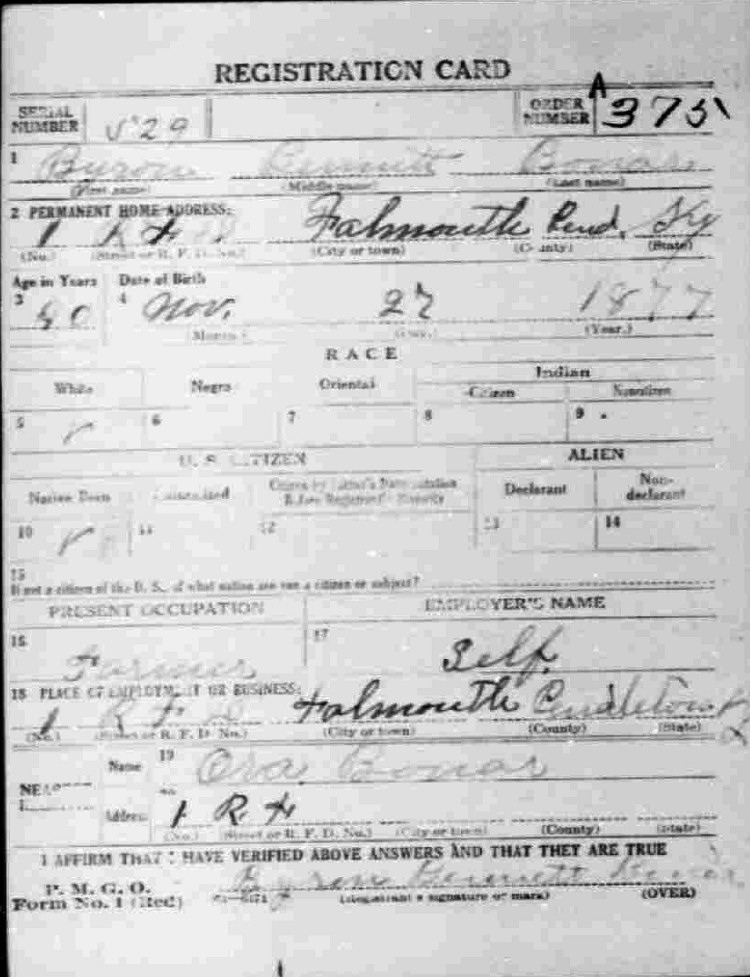 REGISTRATION CARD
SERIAL NUMBER 529 ORDER NUMBER A 375
1 Byron Bennett Bonar
(First name) (Middle name) (Last name)
2 PERMANENT HOME ADDRESS:
1 R F D Falmouth Pend. Ky
(No.) (Street or R. F. D. No.) (City or town) (County) (State)
Age in Years Date of Birth
3 40 4 Nov. 27 1877
Month (Day.) (Year.)
RACE
White Negro Oriental Indian
Citizen Noncitizen
5 6 7 8 9
U. S. CITIZEN ALIEN
Native Born Naturalized Citizen by Father's Naturalization Before Registrant's Majority Declarant Non-declarant
10 11 12 13 14
15
If not a citizen of the U. S., of what nation are you a citizen or subject?
PRESENT OCCUPATION EMPLOYER'S NAME
16 Farmer 17 Self.
18 PLACE OF EMPLOYMENT OR BUSINESS:
1 R F D Falmouth Pendleton Ky
(No.) (Street or R. F. D. No.) (City or town) (County) (State)
Name 19 Ora Bonar
Address 1 R F
(No.) (Street or R. F. D. No.) (City or town) (County) (State)
I AFFIRM THAT I HAVE VERIFIED ABOVE ANSWERS AND THAT THEY ARE TRUE
P. M. G. O.
Form No. 1 (Red) Byron Bennett Bonar
(Registrant's signature or mark) (OVER)